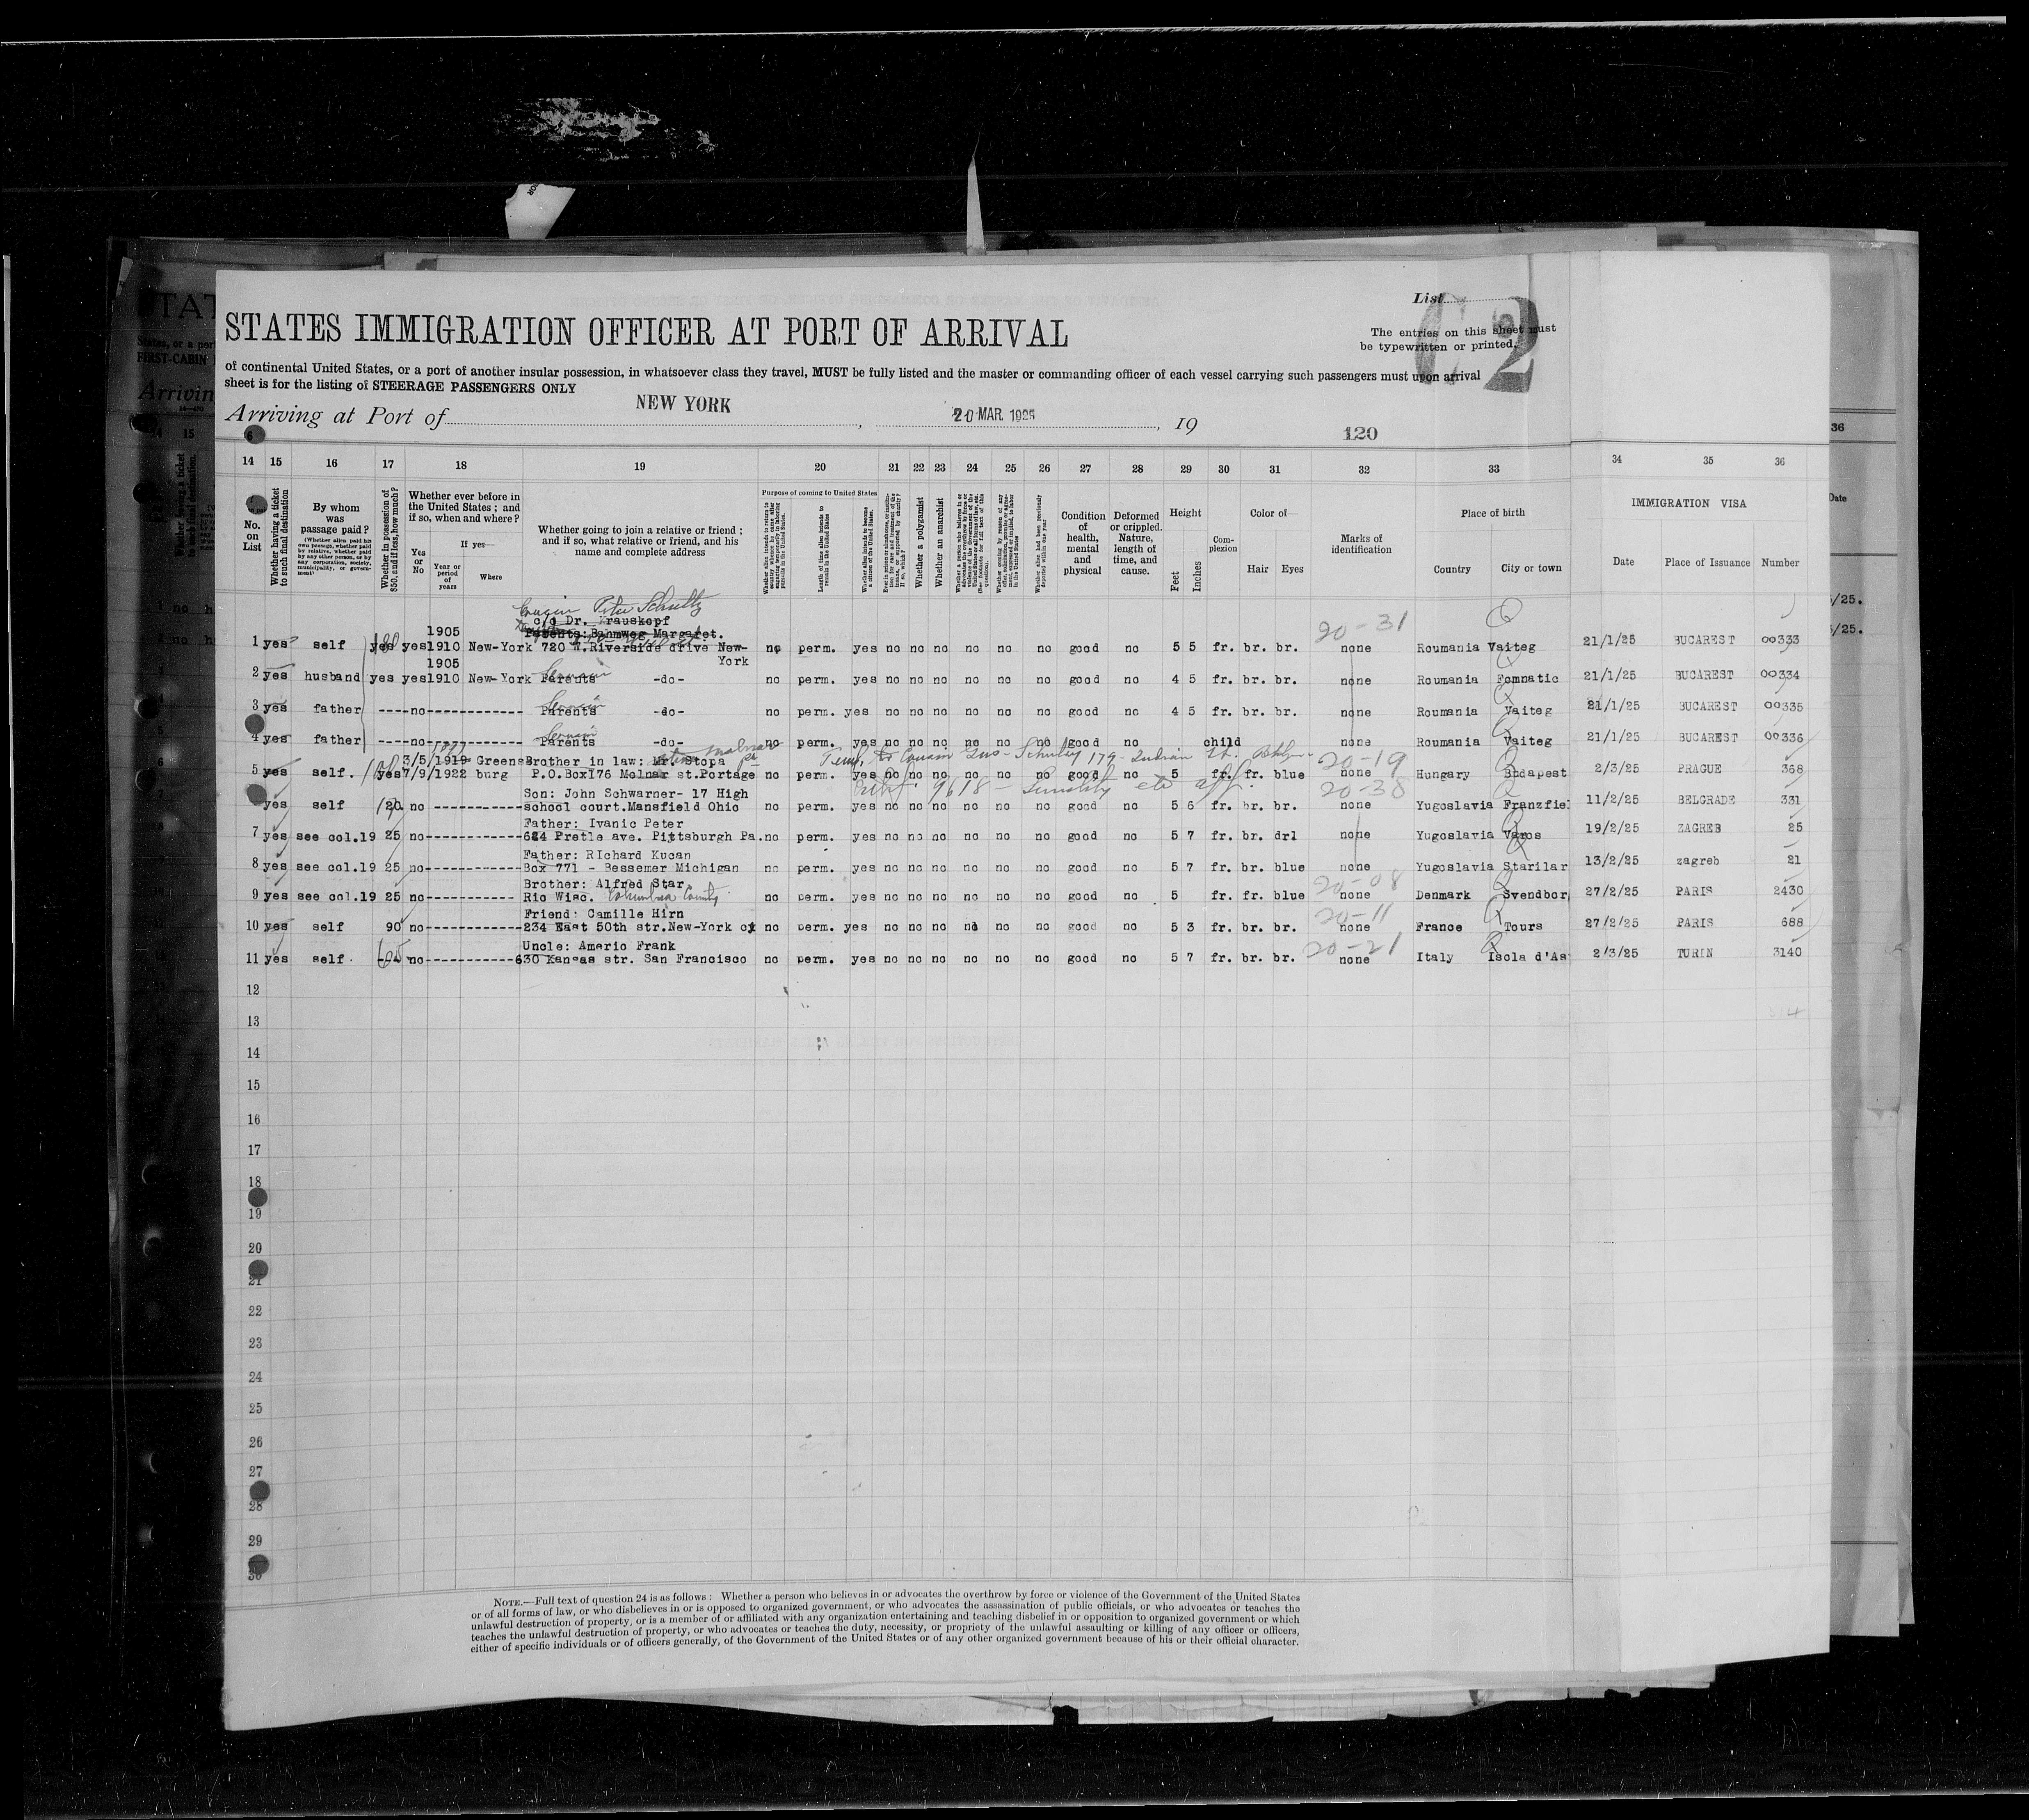 List
C 2
STATES IMMIGRATION OFFICER AT PORT OF ARRIVAL
The entries on this sheet must
be typewritten or printed.
of continental United States, or a port of another insular possession, in whatsoever class they travel, MUST be fully listed and the master or commanding officer of each vessel carrying such passengers must upon arrival
sheet is for the listing of STEERAGE PASSENGERS ONLY
Arriving at Port of NEW YORK, 20 MAR. 1925, 19
120
14 15 16 17 18 19 20 21 22 23 24 25 26 27 28 29 30 31 32 33 34 35 36
No. on List
Whether having a ticket to such final destination
By whom was passage paid?
(Whether alien paid his own passage, whether paid by relative, whether paid by any other person, or by any corporation, society, municipality, or government)
Whether in possession of $50, and if less, how much?
Whether ever before in the United States; and if so, when and where?
Yes or No
If yes—
Year or period of years
Where
Whether going to join a relative or friend; and if so, what relative or friend, and his name and complete address
Purpose of coming to United States
Length of time alien intends to remain in the United States
Whether alien intends to become a citizen of the United States.
Whether a polygamist
Whether an anarchist
Condition of health, mental and physical
Deformed or crippled. Nature, length of time, and cause.
Height
Feet Inches
Complexion
Color of—
Hair Eyes
Marks of identification
Place of birth
Country City or town
IMMIGRATION VISA
Date Place of Issuance Number
Cousin Peter Schultz
c/o Dr. Krauskopf
1905 Parents: Bahmweg Margaret. 20-31
1 yes self yes yes 1910 New-York 720 W. Riverside drive New-York no perm. yes no no no no no no good no 5 5 fr. br. br. none Roumania Vaiteg 21/1/25 BUCAREST 00333
1905
2 yes husband yes yes 1910 New-York Parents -do- no perm. yes no no no no no no good no 4 5 fr. br. br. none Roumania Fomnatic 21/1/25 BUCAREST 00334
3 yes father ----no------------ Parents -do- no perm. yes no no no no no no good no 4 5 fr. br. br. none Roumania Vaiteg 21/1/25 BUCAREST 00335
4 yes father ----no------------ Parents -do- no perm. yes no no no no no no good no child none Roumania Vaiteg 21/1/25 BUCAREST 00336
3/5/1919 Greens Brother in law: Mr. Stopa Cousin Gus Schultz 179 Indian St. 20-19
5 yes self. yes 7/9/1922 burg P.O.Box 176 Molnar st. Portage no perm. yes no no no no no no good no 5 fr. fr. blue none Hungary Budapest 2/3/25 PRAGUE 368
Son: John Schwarner- 17 High 9618 20-38
yes self 20 no ------------ school court. Mansfield Ohio no perm. yes no no no no no no good no 5 6 fr. br. br. none Yugoslavia Franzfie 11/2/25 BELGRADE 331
Father: Ivanic Peter
7 yes see col.19 25 no------------ 624 Pretle ave. Pittsburgh Pa. no perm. yes no no no no no no good no 5 7 fr. br. drl none Yugoslavia Varos 19/2/25 ZAGREB 25
Father: RIchard Kucan
8 yes see col.19 25 no------------ Box 771 - Bessemer Michigan no perm. yes no no no no no no good no 5 7 fr. br. blue none Yugoslavia Starilar 13/2/25 zagreb 21
Brother: Alfred Star 20-08
9 yes see col.19 25 no----------- Rio Wisc. Columbia County no perm. yes no no no no no no good no 5 fr. fr. blue none Denmark Svendbor 27/2/25 PARIS 2430
Friend: Camille Hirn 20-11
10 yes self 90 no------------ 234 East 50th str. New-York no perm. yes no no no no no no good no 5 3 fr. br. br. none France Tours 27/2/25 PARIS 688
Uncle: Amerio Frank 20-21
11 yes self. no------------ 630 Kansas str. San Francisco no perm. yes no no no no no no good no 5 7 fr. br. br. none Italy Isola d'As 2/3/25 TURIN 3140
12
13
14
15
16
17
18
19
20
21
22
23
24
25
26
27
28
29
30
NOTE.—Full text of question 24 is as follows: Whether a person who believes in or advocates the overthrow by force or violence of the Government of the United States
or of all forms of law, or who disbelieves in or is opposed to organized government, or who advocates the assassination of public officials, or who advocates or teaches the
unlawful destruction of property, or is a member of or affiliated with any organization entertaining and teaching disbelief in or opposition to organized government or which
teaches the unlawful destruction of property, or who advocates or teaches the duty, necessity, or propriety of the unlawful assaulting or killing of any officer or officers,
either of specific individuals or of officers generally, of the Government of the United States or of any other organized government because of his or their official character.